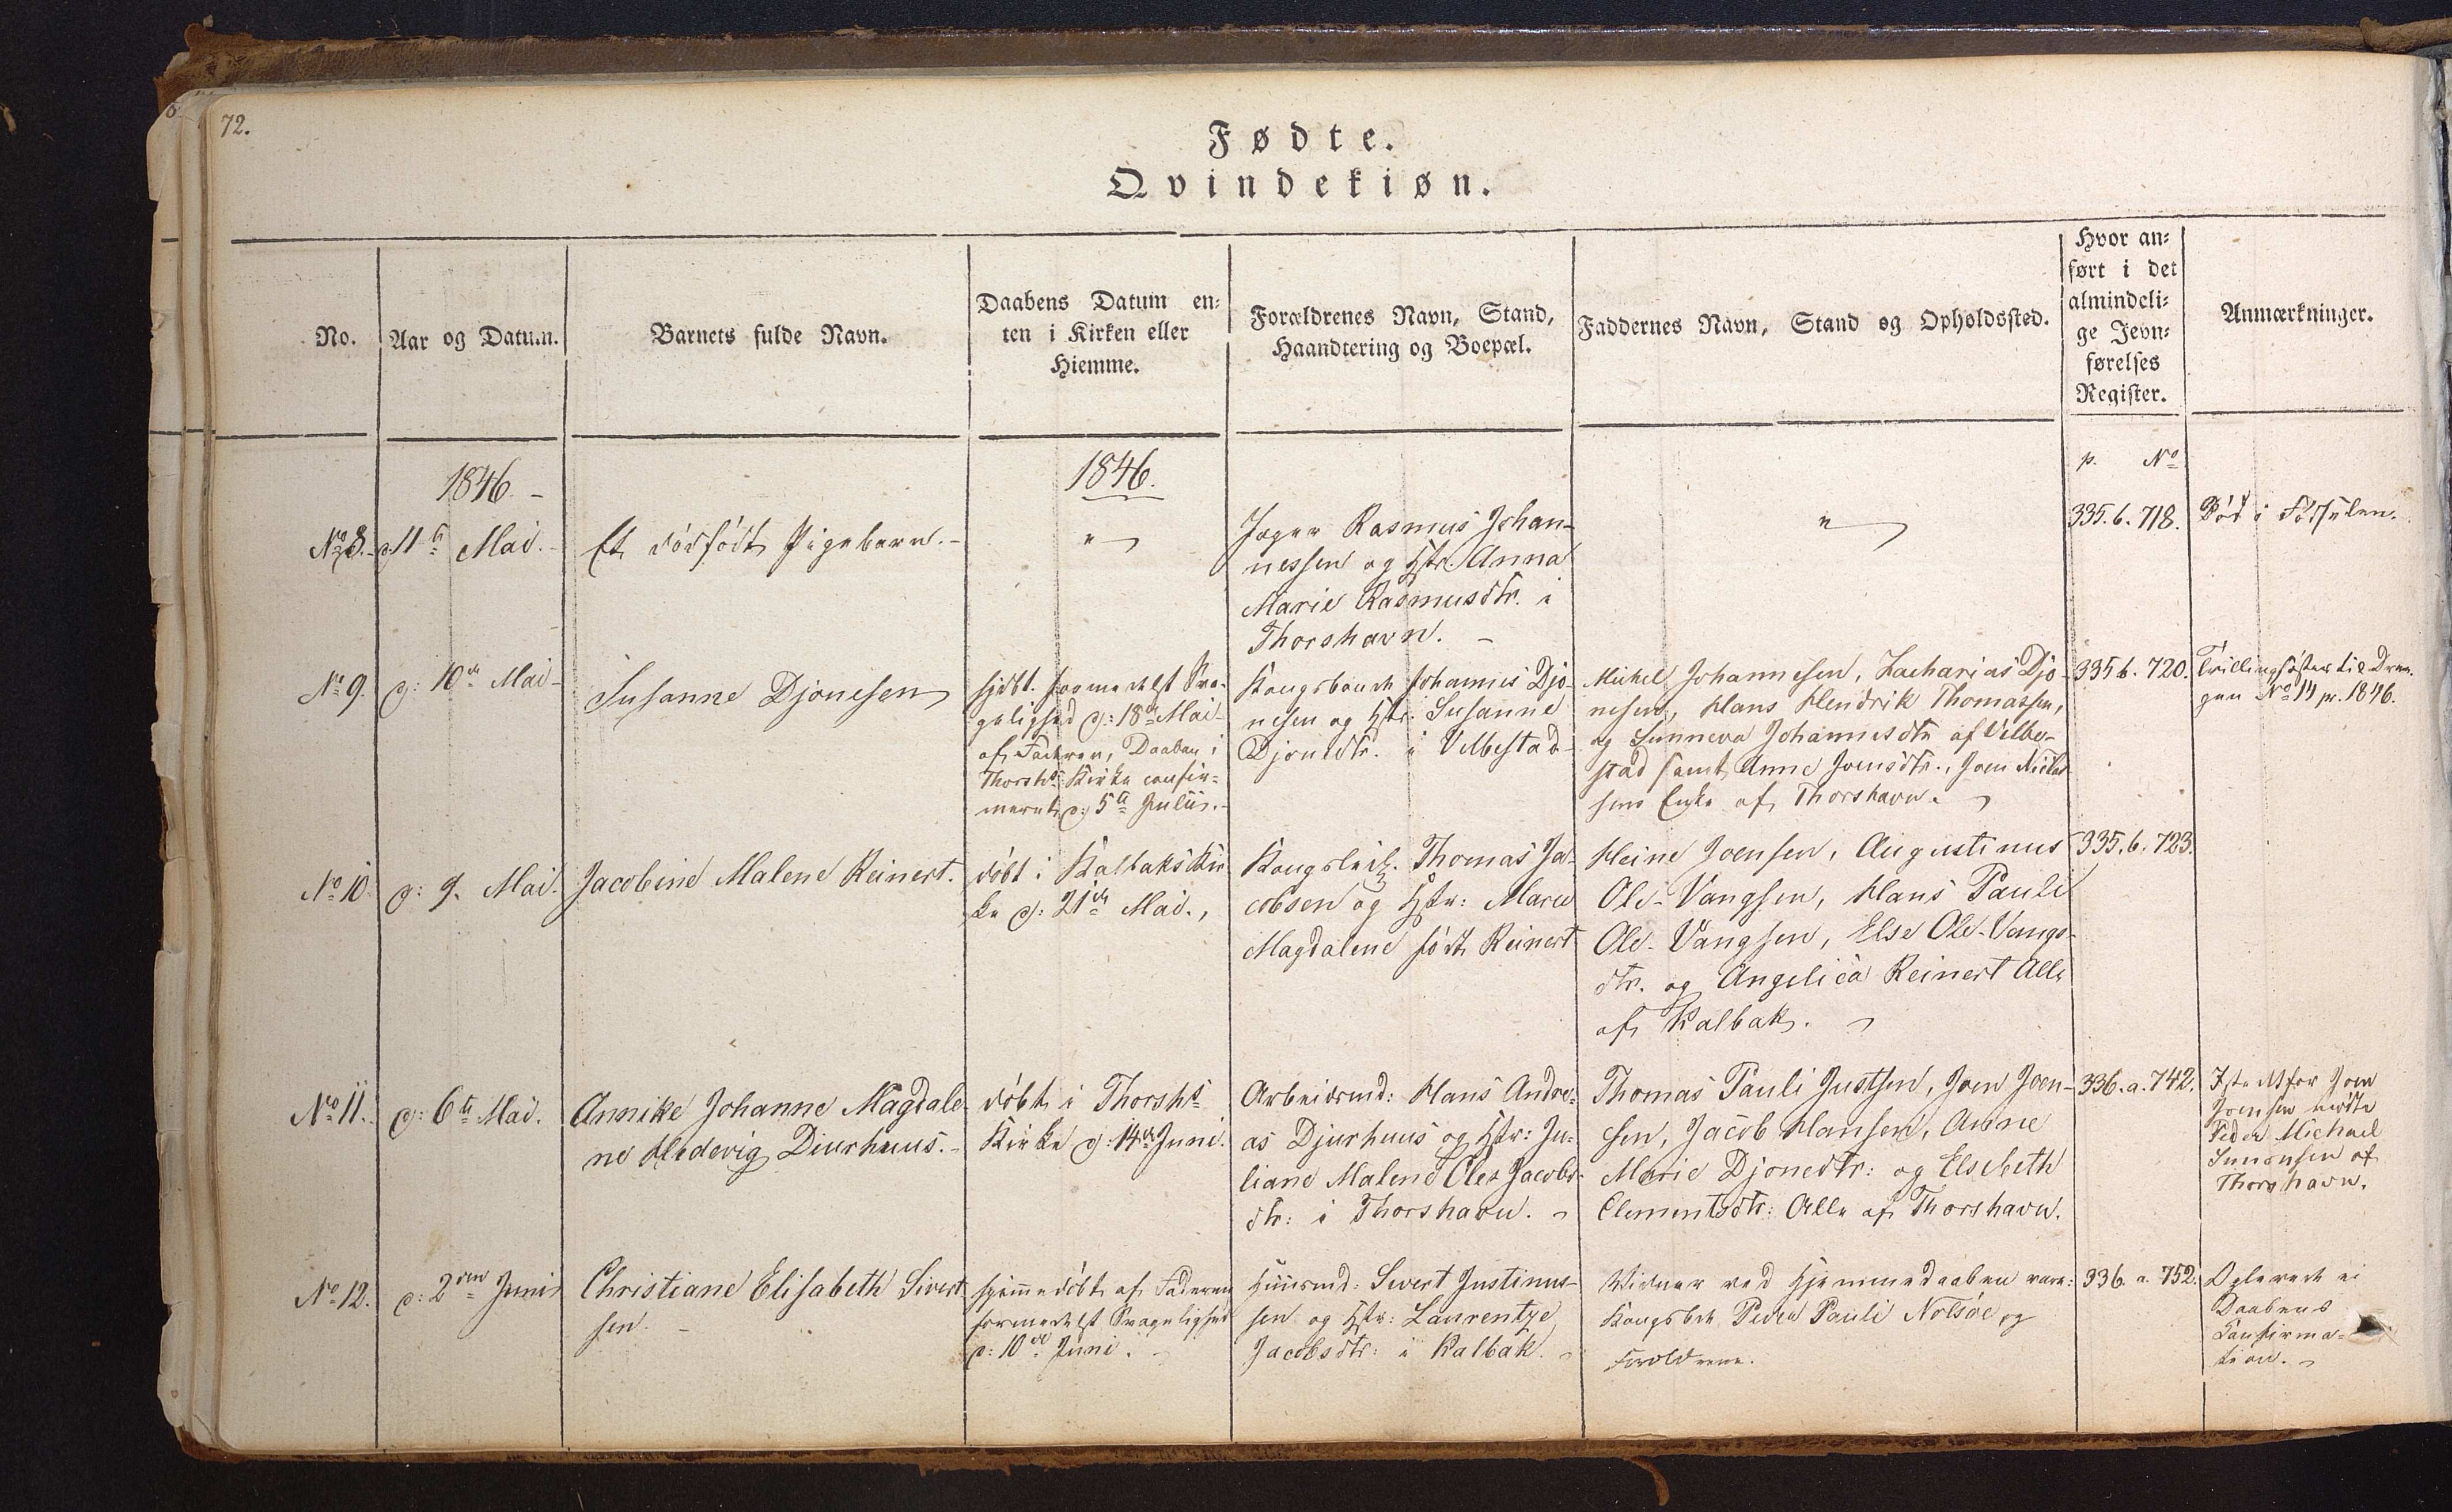 72.
Fødte.
Qvindekiøn.
No.
Aar og Datum.
Barnets fulde Navn.
Daabens Datum en-
ten i Kirken eller
Hiemme.
Forældrenes Navn, Stand,
Haandtering og Boepæl.
Faddernes Navn, Stand og Opholdssted.
Hvor an-
ført i det
almindeli-
ge Jevn-
førelses
Register.
Anmærkninger.
1846. -
1846.
p. No
No 8.
d. 11te Mai. -
Et dödfödt Pigebarn. -
"
Rasmus Johan-
nessen og Hstr. Anna
Marie Rasmusdtr. i
Thorshavn. -
"
335. b. 718.
Död i Födselen.
No 9.
d: 10de Mai -
Susanne Djonesen
hjdbt. formedelst Sva-
gelighed d: 18de Mai
af Faderen, Daaben i
Thorshs Kirke confir-
meret d: 5te Julii. -
Kongsbonde Johannes Djo-
nesen og Hstr: Susanne
Djonedtr. i Velbestad -
Michel Johannesen, Zacharias Djo-
nesen, Hans Hendrik Thomassen,
og Sunneva Johannesdtr af Velbe-
stad samt Anne Joensdtr., Joen Niclas
sens Enke af Thorshavn.
335 b. 720.
Tvillingsöster til Dren-
gen No 14 pr. 1846.
No 10
d: 9. Mai.
Jacobine Malene Reinert.
döbt i Kalbaks Kir
ke d: 21de Mai.,
Thomas Ja-
cobsen og Hstr: Maria
Magdalene födt Reinert
Heine Joensen, Augustinus
Ole-Vangsen, Hans Pauli
Ole-Vangsen, Else Ole-Vangs-
dtr. og Angelica Reinert Alle
af Kalbak.
335. b. 723.
No 11.
d: 6te Mai.
Annike Johanne Magdale-
ne Hedevig Djurhuus. -
döbt i Thorshs
Kirke d: 14de Juni.
Arbeidsmd: Hans Andre-
as Djurhuus og Hstr: Ju-
liane Malene Oles Jacobs-
dtr: i Thorshavn.
Thomas Pauli Justsen, Joen Joen-
sen, Jacob Hansen, Anne
Marie Djonedtr: og Elsebeth
Clementsdtr: Alle af Thorshavn.
336. a. 742.
Istedetfor Joen
Joensen mödte
Peder Michael
Simonsen af
Thorshavn.
No 12.
d: 2den Juni
Christiane Elisabeth Sivert
sen. -
hjemmedöbt af Faderen
formedelst Svagelighed
d: 10de Juni. -
Huusmd: Sivert Justinus-
sen og Hstr: Laurentze
Jacobsdtr: i Kalbak.
Vidner ved Hjemmedaaben vare:
Kongsbde Peder Pauli Nolsöe og
Forældrene.
336. a. 752.
Oplevede ei
Daabens
Confirma-
tion.